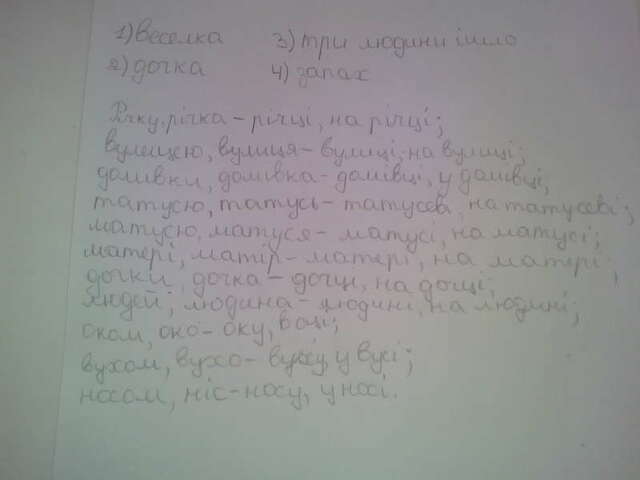 1) веселка 3) три людини ішло
2) дочка 4) запах
Річку, річка - річці, на річці;
вулицею, вулиця - вулиці, на вулиці;
домівки, домівка - домівці, у домівці;
татусю, татусь - татусеві, на татусеві;
матусю, матуся - матусі, на матусі;
матері, матір - матері, на матері;
дочки, дочка - дочці, на дочці;
людей, людина - людині, на людині;
оком, око - оку, в оці;
вухом, вухо - вуху, у вусі;
носом, ніс - носу, у носі.